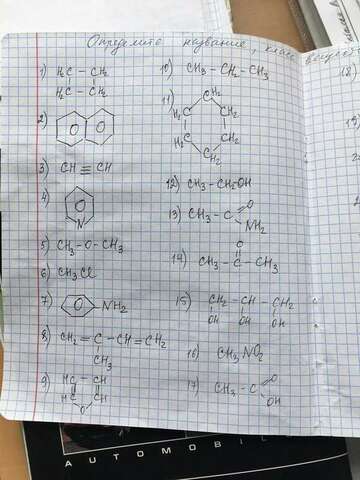 Определите название, класс
1) H₂C – CH₂
H₂C – CH₂
2)
3) CH ≡ CH
4) N
5) CH₃ – O – CH₃
6) CH₃Cl
7) NH₂
8) CH₂ = C – CH = CH₂
CH₃
9) HC – CH
HC CH
O
10) CH₃ – CH₂ – CH₃
11) CH₂
H₂C CH₂
H₂C CH₂
CH₂
12) CH₃ – CH₂OH
13) CH₃ – C O
NH₂
14) O
CH₃ – C – CH₃
15) CH₂ – CH – CH₂
OH OH OH
16) CH₃NO₂
17) CH₃ – C O
OH
18)
19)
AUTOMOBIL